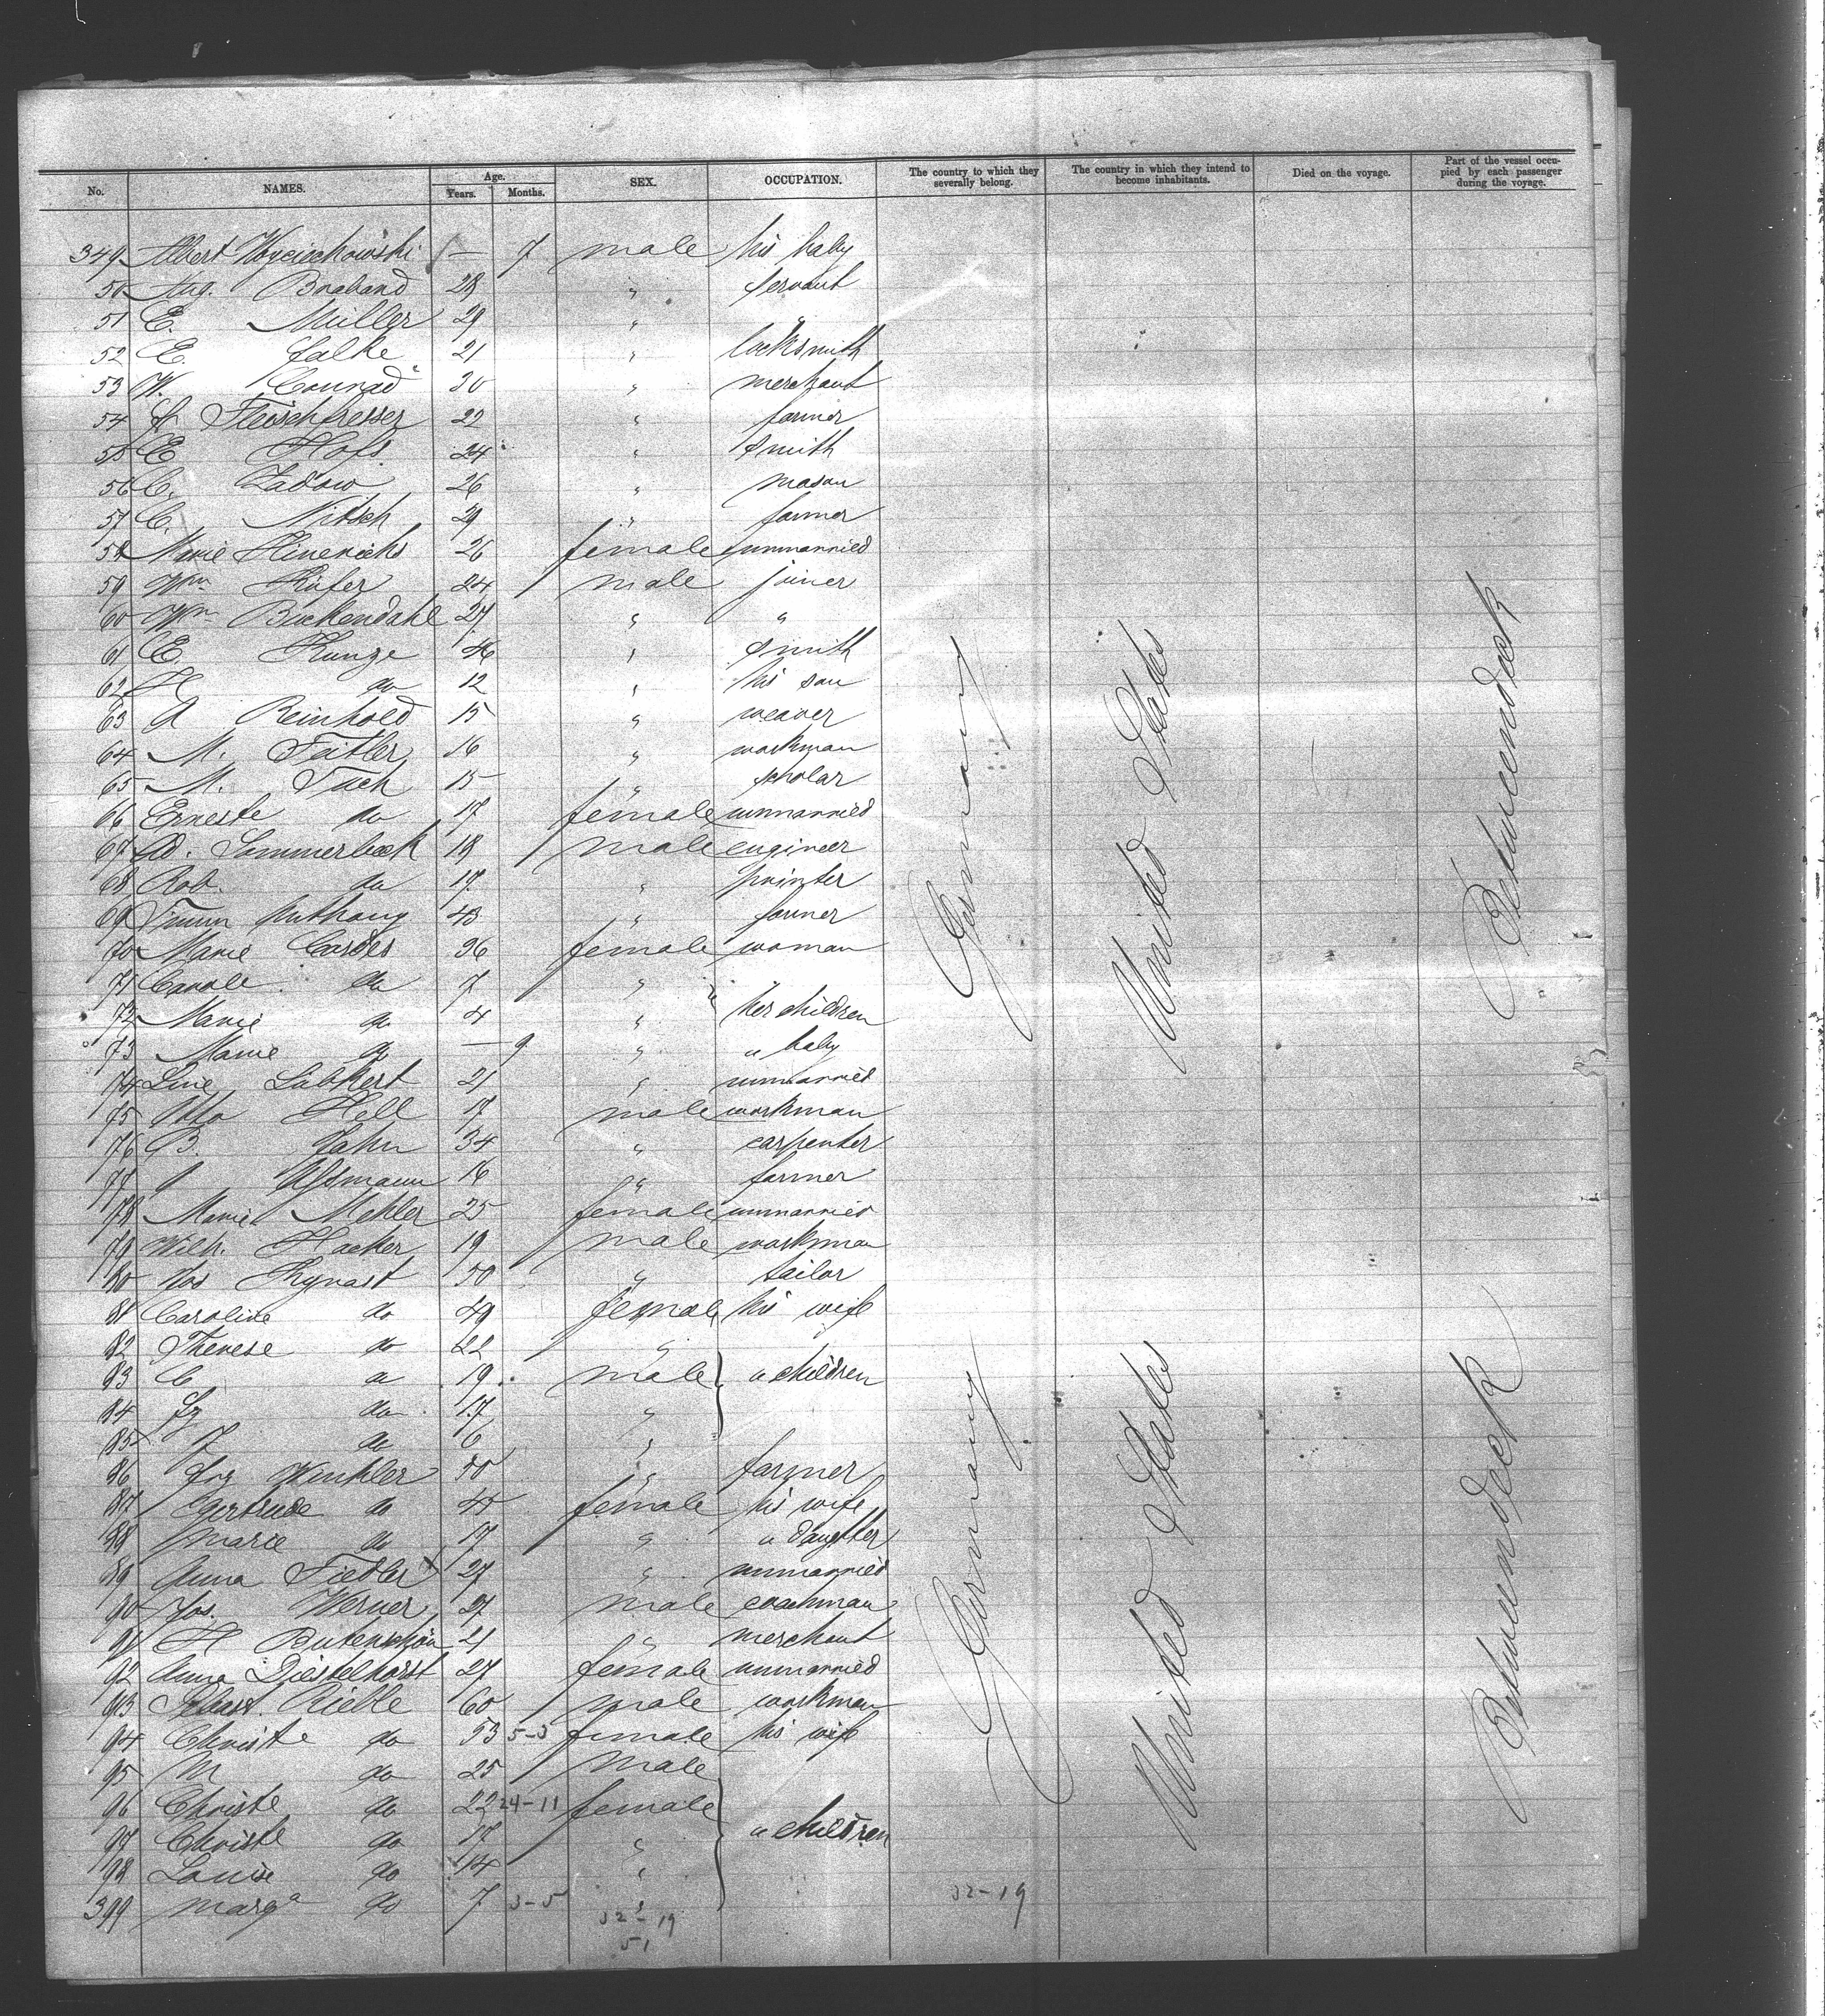 No. NAMES. Age. Years. Months. SEX. OCCUPATION. The country to which they severally belong. The country in which they intend to become inhabitants. Died on the voyage. Part of the vessel occupied by each passenger during the voyage.
349 Albert Woyciechowski — 7 male his baby
50 Aug. Braband 28 " servant
51 E. Müller 29 " "
52 E. Falke 21 " locksmith
53 W. Conrad 30 " merchant
54 Fleischfresser 22 " farmer
55 E Hofs 24 " smith
56 C. Zadow 26 " mason
57 C. Nitsch 29 " farmer
58 Marie Hinrichs 26 female unmarried
59 Wm Küfer 24 male joiner
60 Wm Buckendahl 27 " "
61 E. Kunze 46 " smith
62 H do 12 " his son
63 A Reinhold 15 " weaver
64 M. Feitler 16 " workman
65 M. Tuch 15 " scholar
66 Erneste do 17 female unmarried
67 Ad. Sommerbeck 18 male engineer
68 Rob. do 17 " printer
69 Anthony 43 " farmer
70 Marie Cordes 36 female woman
71 Carole do 7 "
72 Marie do 4 " her children
73 Marie do — 9 " " baby
74 Line Lübkert 21 " unmarried
75 Otto Hell 17 male workman
76 B. Jahn 34 " carpenter
77 J Assmann 16 " farmer
78 Marie Mehler 25 female unmarried
79 Wilh. Hacker 19 male workman
80 Jos Kynast 50 " tailor
81 Caroline do 49 female his wife
82 Therese do 22 "
83 C do 19 male " children
84 do 17 "
85 J do 6 "
86 Winkler 50 " farmer
87 Gertrude do 45 female his wife
88 Marie do 17 " " daughter
89 Anna Fiedler 27 " unmarried
90 Jos. Werner 27 male coachman
91 H Butenschön 21 " merchant
92 Anna Diestelhorst 27 female unmarried
93 Sebast. Rieble 60 male workman
94 Christe do 53 5-3 female his wife
95 M do 25 male
96 Christe do 22 24-11 female
97 Christe do 17 " " children
98 Louise do 14 "
399 Marga do 7 3-5 "
32-19
51
32-19
Germany United States Betweendeck
Germany United States Betweendeck